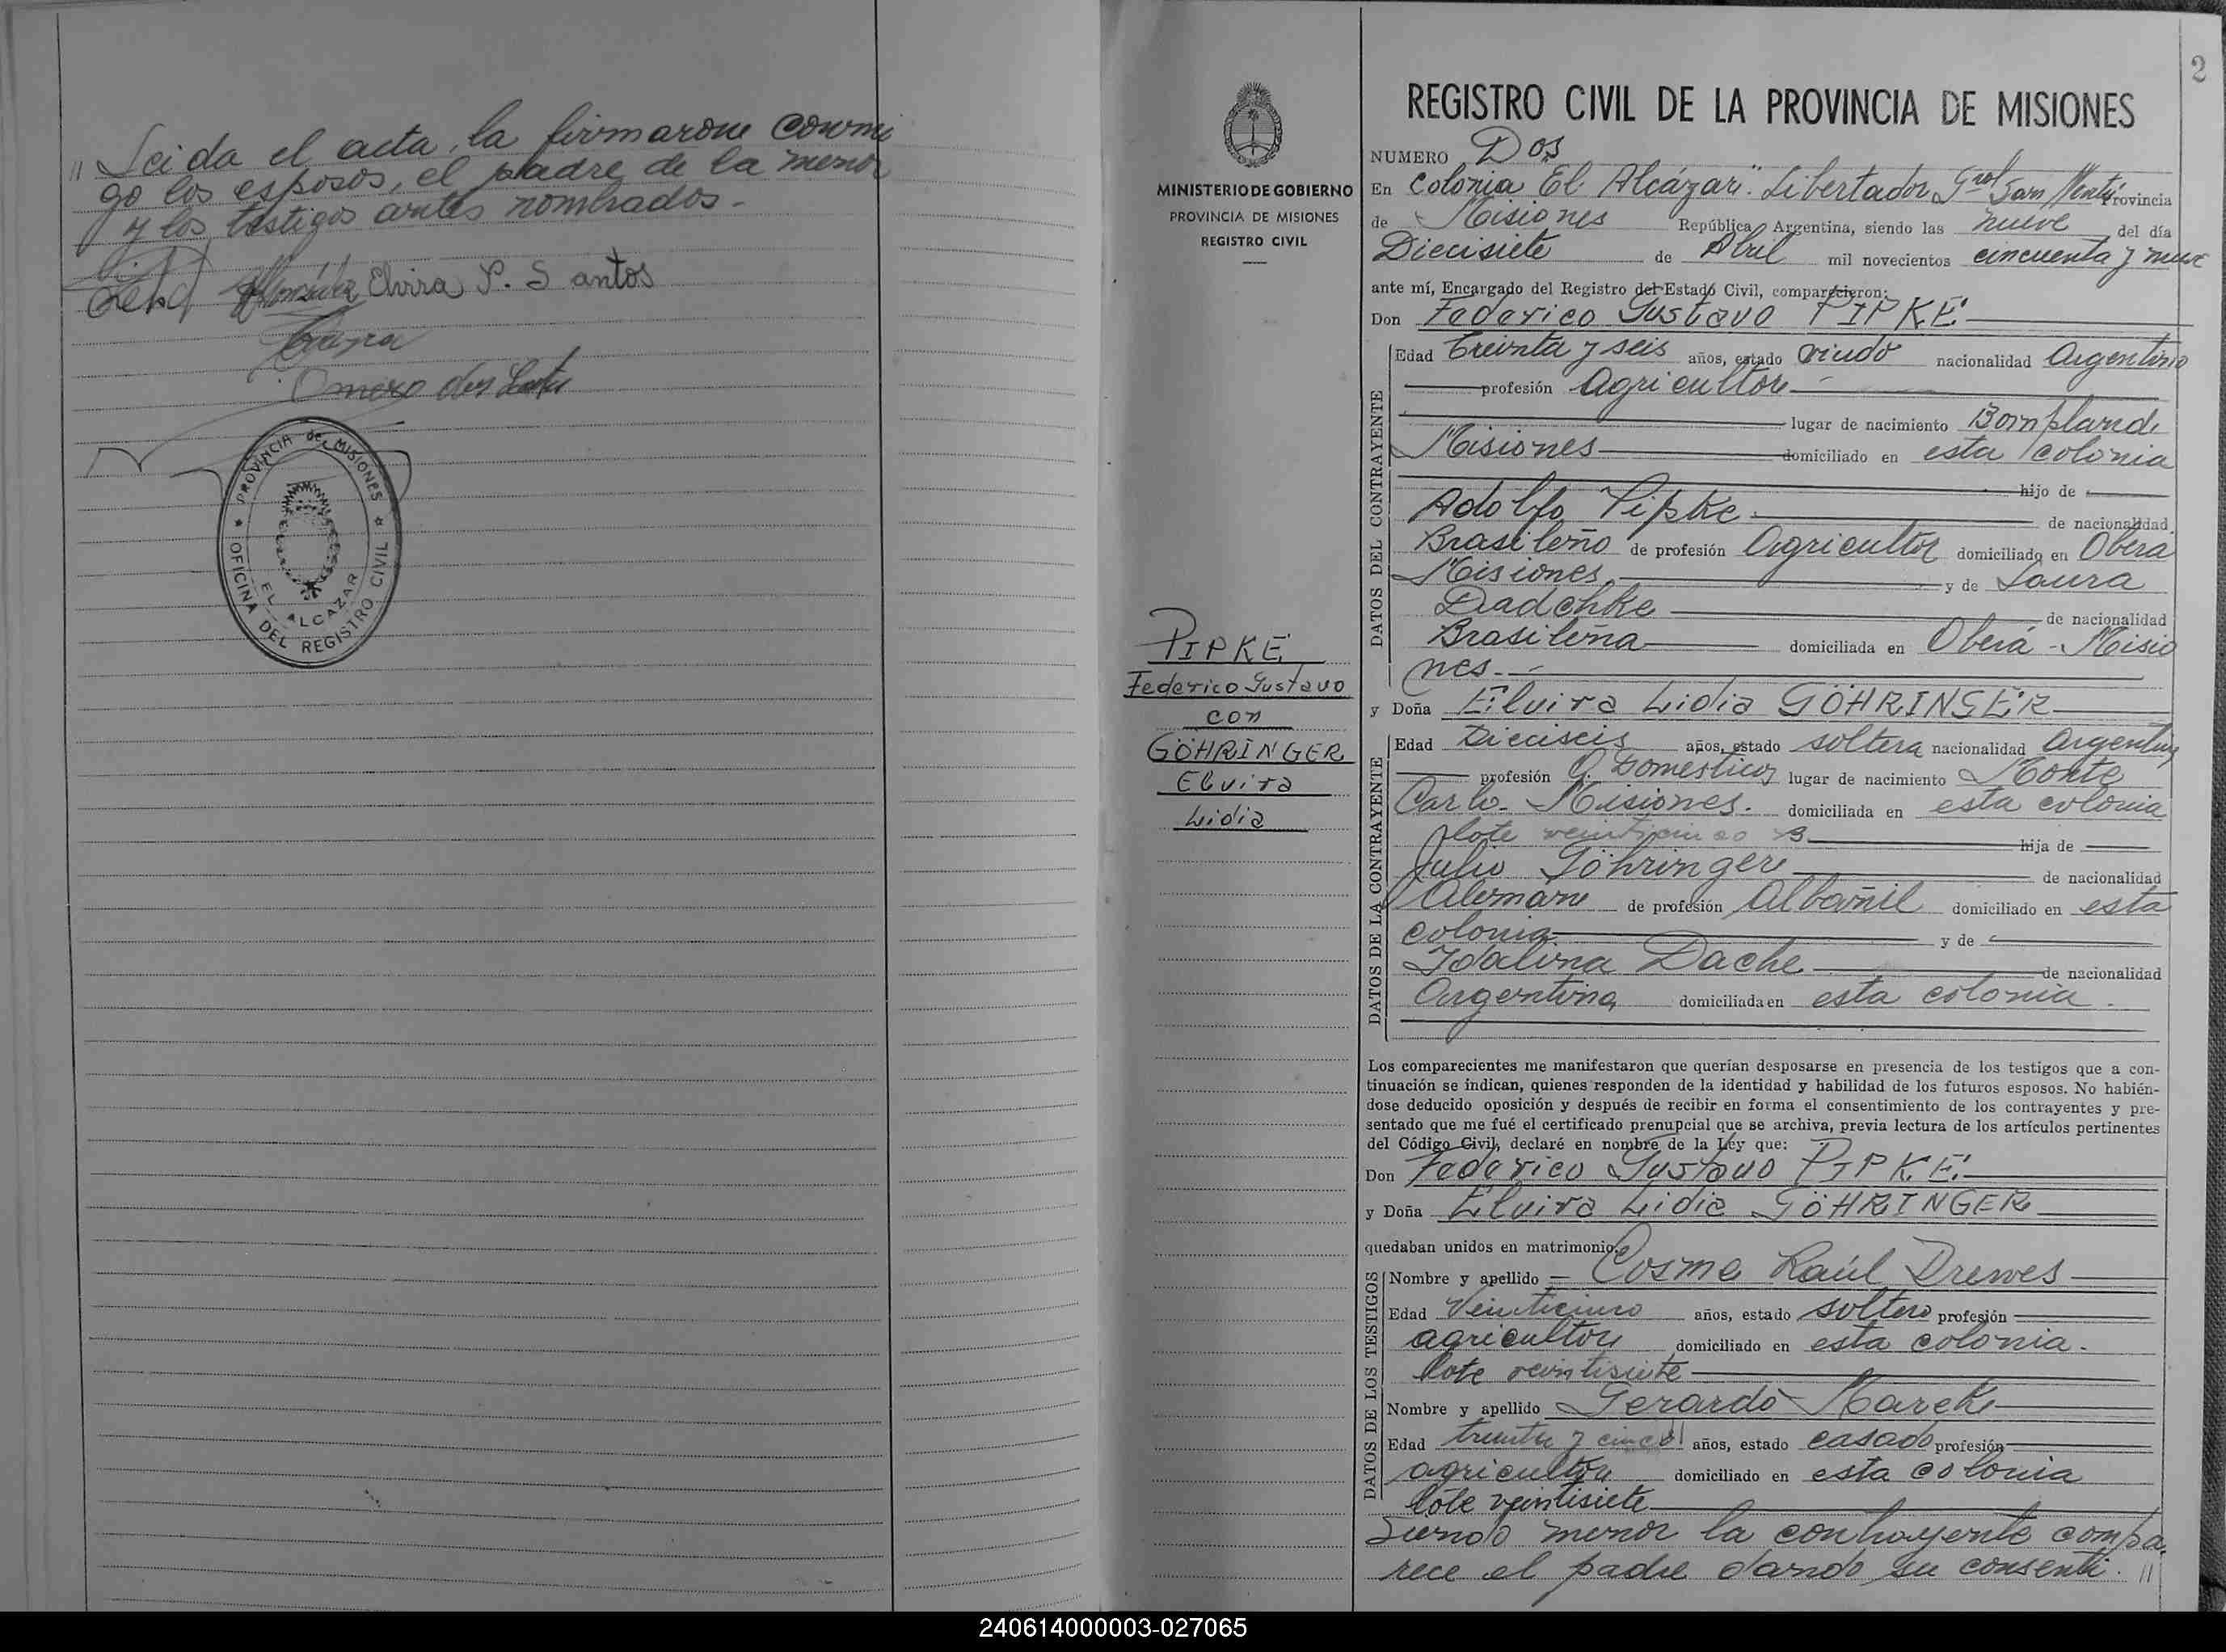 " Leida el acta, la firmaron conmi
go los esposos, el padre de la menor
y los testigos antes nombrados.-
González Elvira P. Santos
Omero dos
PROVINCIA de MISIONES
OFICINA DEL REGISTRO CIVIL
EL ALCAZAR
2
MINISTERIO DE GOBIERNO
PROVINCIA DE MISIONES
REGISTRO CIVIL
PIPKE
Federico Gustavo
con
GÖHRINGER
Elvira
Lidia
REGISTRO CIVIL DE LA PROVINCIA DE MISIONES
NUMERO Dos
En Colonia "El Alcázar". Libertador Gral San Martín Provincia
de Misiones República Argentina, siendo las nueve del día
Diecisiete de Abril mil novecientos cincuenta y nueve
ante mí, Encargado del Registro del Estado Civil, comparecieron:
Don Federico Gustavo PIPKE
DATOS DEL CONTRAYENTE
Edad treinta y seis años, estado viudo nacionalidad Argentino
profesión Agricultor
lugar de nacimiento Bompland,
Misiones domiciliado en esta colonia
hijo de
Adolfo Pipke de nacionalidad
Brasileño de profesión Agricultor domiciliado en Oberá
Misiones y de Laura
Dadchke de nacionalidad
Brasileña domiciliada en Oberá - Misio
nes.-
y Doña Elvira Lidia GÖHRINGER
DATOS DE LA CONTRAYENTE
Edad Dieciseis años, estado soltera nacionalidad Argentina
profesión Q. Domésticos lugar de nacimiento Monte
Carlo - Misiones. domiciliada en esta colonia
lote veinticinco B hija de
Julio Göhringer de nacionalidad
Alemán de profesión Albañil domiciliado en esta
colonia y de
Idalina Dache de nacionalidad
Argentina domiciliada en esta colonia.
Los comparecientes me manifestaron que querían desposarse en presencia de los testigos que a con-
tinuación se indican, quienes responden de la identidad y habilidad de los futuros esposos. No habién-
dose deducido oposición y después de recibir en forma el consentimiento de los contrayentes y pre-
sentado que me fué el certificado prenupcial que se archiva, previa lectura de los artículos pertinentes
del Código Civil, declaré en nombre de la Ley que:
Don Federico Gustavo PIPKE.
y Doña Elvira Lidia GÖHRINGER
quedaban unidos en matrimonio.
DATOS DE LOS TESTIGOS
Nombre y apellido Cosme Raúl Drewes
Edad Veinticinco años, estado soltero profesión
agricultor domiciliado en esta colonia.
lote veintisiete
Nombre y apellido Gerardo Marek
Edad treinta y cinco años, estado casado profesión
agricultor domiciliado en esta colonia
lote veintisiete
Siendo menor la contrayente compa.
rece el padre dando su consenti. "
240614000003-027065